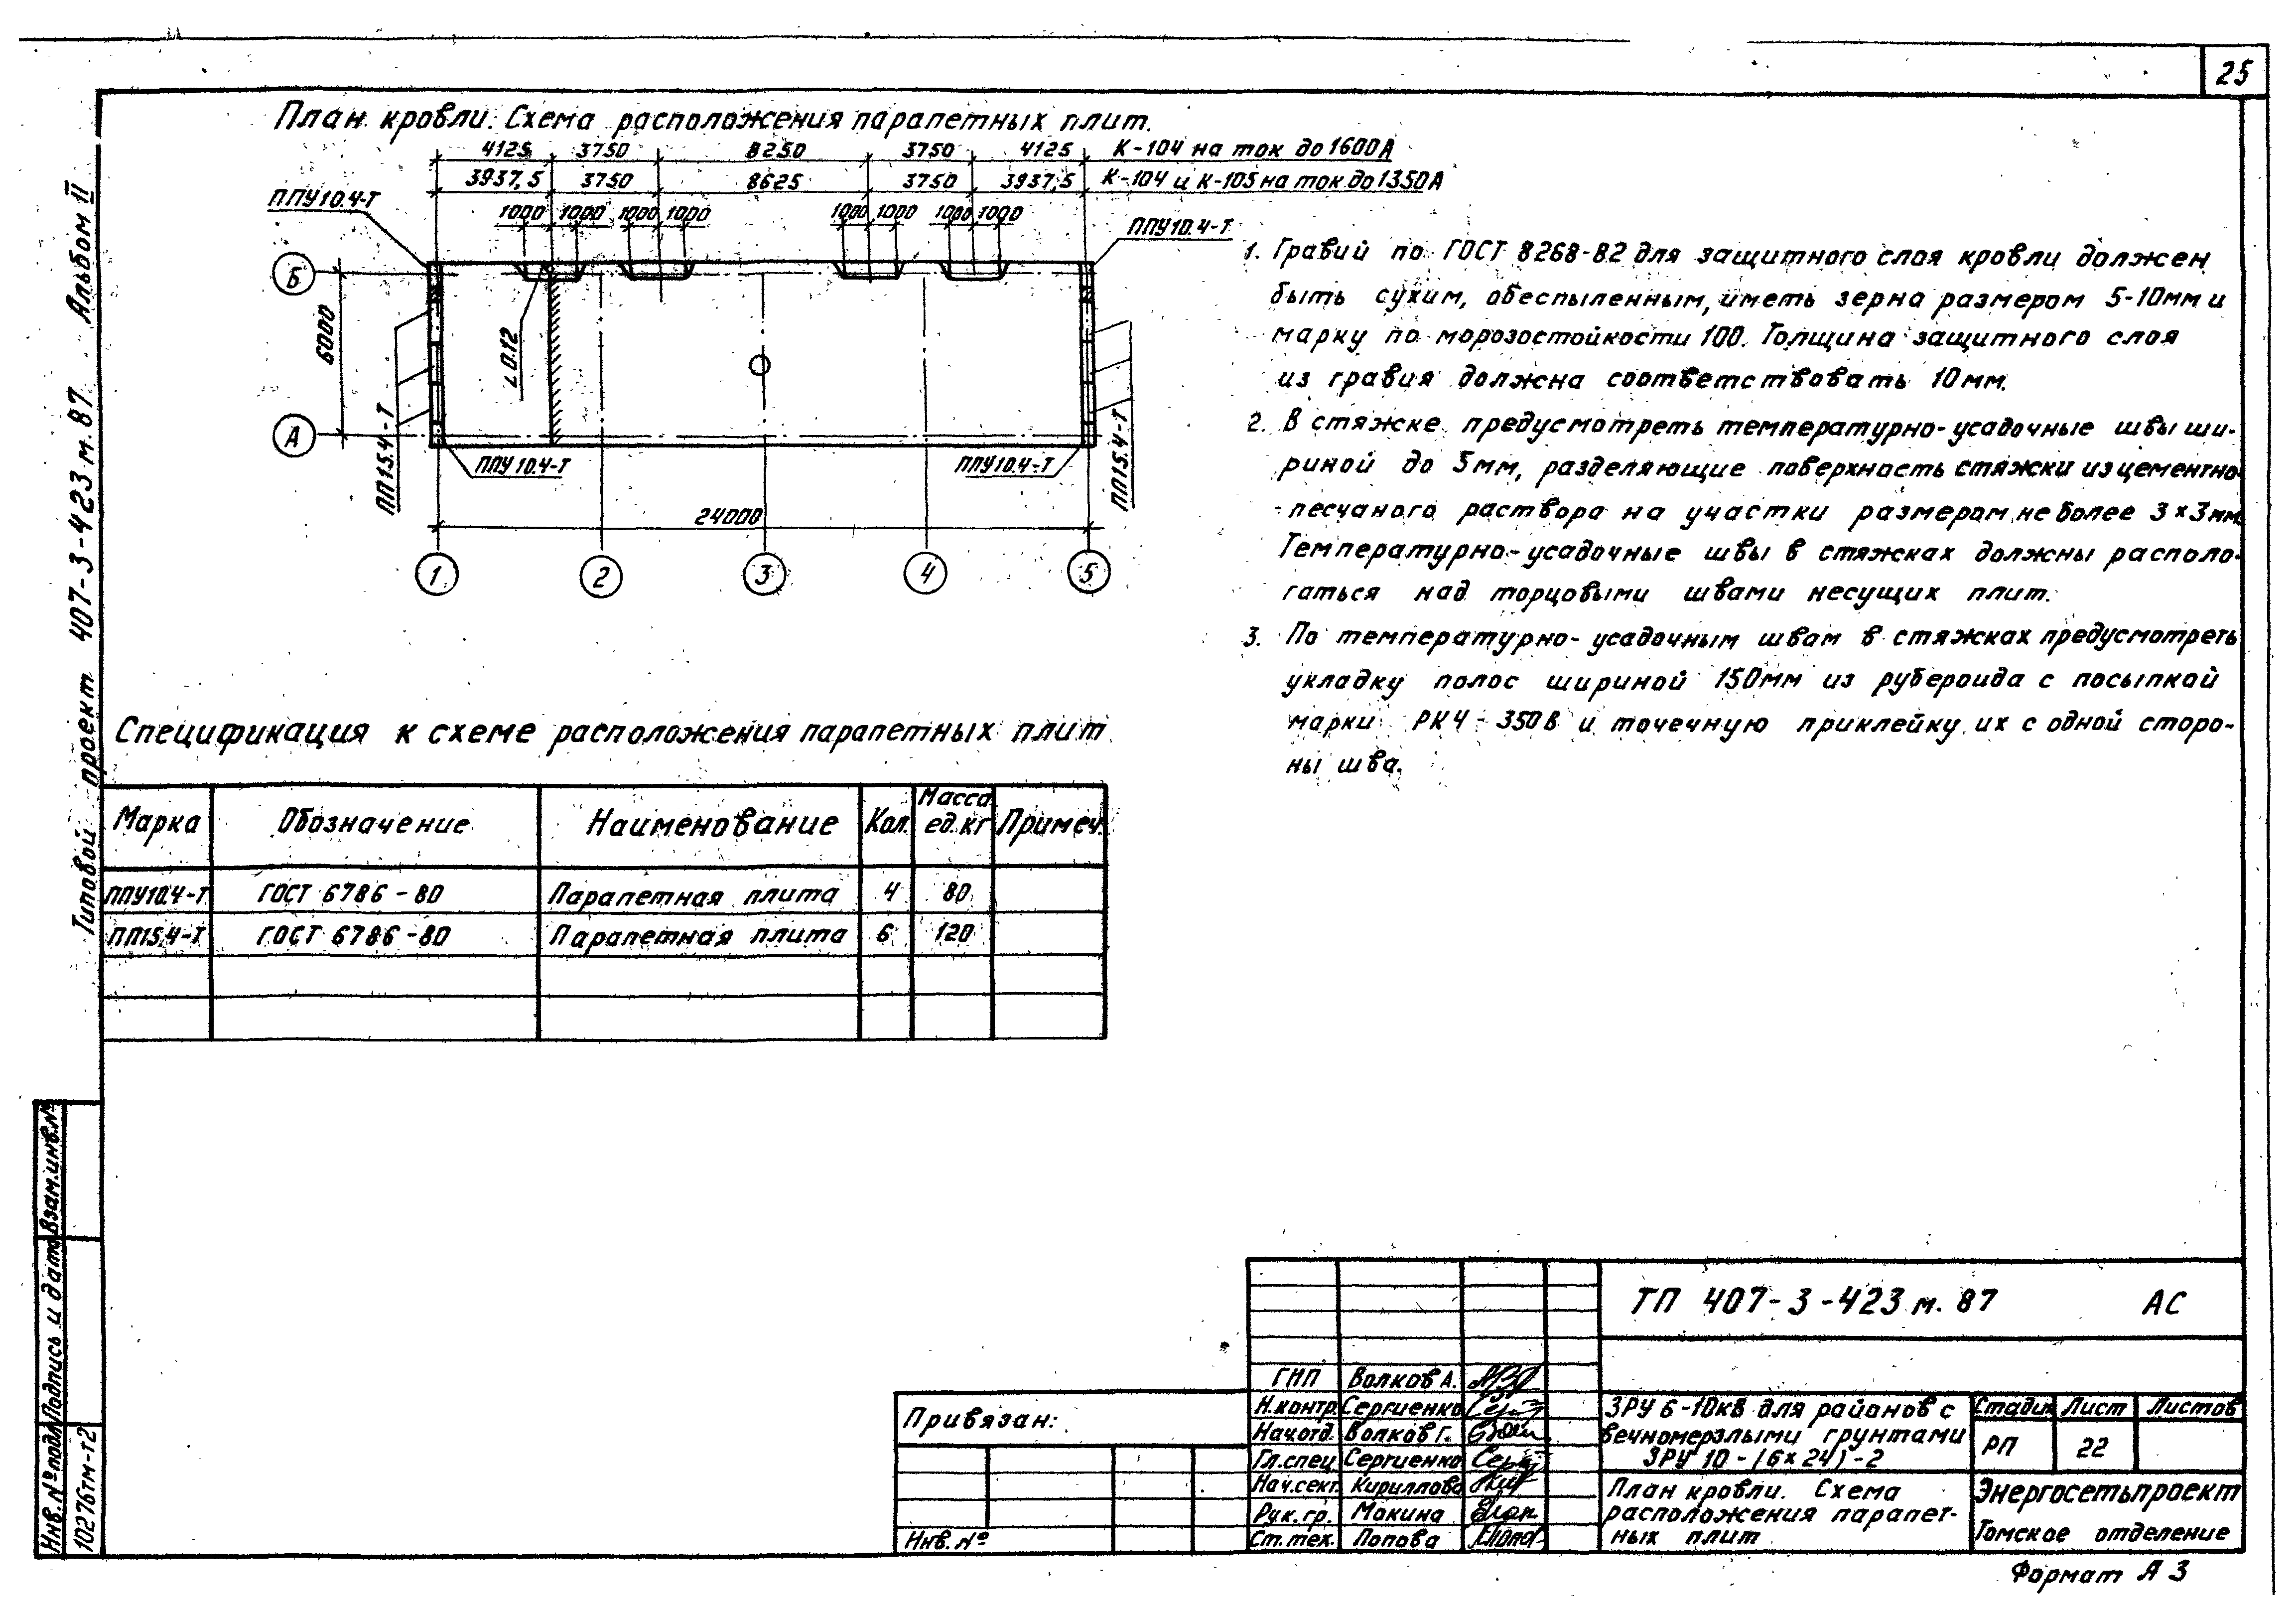 25
План кровли. Схема расположения парапетных плит.
4125 3750 8250 3750 4125 К-104 на ток до 1600А
3937,5 3750 8625 3750 3937,5 К-104 и К-105 на ток до 1350А
1000 1000 1000 1000 1000 1000 1000 1000
ППУ10.4-Т
ППУ10.4-Т
Б
А
6000
ПП15.4-Т
∠0.12
ППУ10.4-Т
ППУ10.4-Т
ПП15.4-Т
24000
1 2 3 4 5
1. Гравий по ГОСТ 8268-82 для защитного слоя кровли должен
быть сухим, обеспыленным, иметь зерна размером 5-10мм и
марку по морозостойкости 100. Толщина защитного слоя
из гравия должна соответствовать 10мм.
2. В стяжке предусмотреть температурно-усадочные швы ши-
риной до 5мм, разделяющие поверхность стяжки из цементно-
-песчаного раствора на участки размером не более 3×3мм.
Температурно-усадочные швы в стяжках должны располо-
гаться над торцовыми швами несущих плит.
3. По температурно-усадочным швам в стяжках предусмотреть
укладку полос шириной 150мм из рубероида с посыпкой
марки РКЧ-350В и точечную приклейку их с одной сторо-
ны шва.
Спецификация к схеме расположения парапетных плит
Марка Обозначение Наименование Кол. Масса ед.кг Примеч.
ППУ10.4-Т ГОСТ 6786-80 Парапетная плита 4 80
ПП15.4-Т ГОСТ 6786-80 Парапетная плита 6 120
Типовой проект 407-3-423м.87 Альбом II
Взам.инв.№
Подпись и дата
Инв.№подл.
10276тм-т2
Привязан:
Инв.№
ТП 407-3-423м.87 АС
ГИП Волков А.
Н.контр. Сергиенко
Нач.отд. Волков Г.
Гл.спец. Сергиенко
Нач.сект. Кириллова
Рук.гр. Мокина
Ст.тех. Попова
ЗРУ 6-10кВ для районов с
вечномерзлыми грунтами
ЗРУ 10-(6×24)-2
Стадия Лист Листов
РП 22
План кровли. Схема
расположения парапет-
ных плит
Энергосетьпроект
Томское отделение
Формат А3